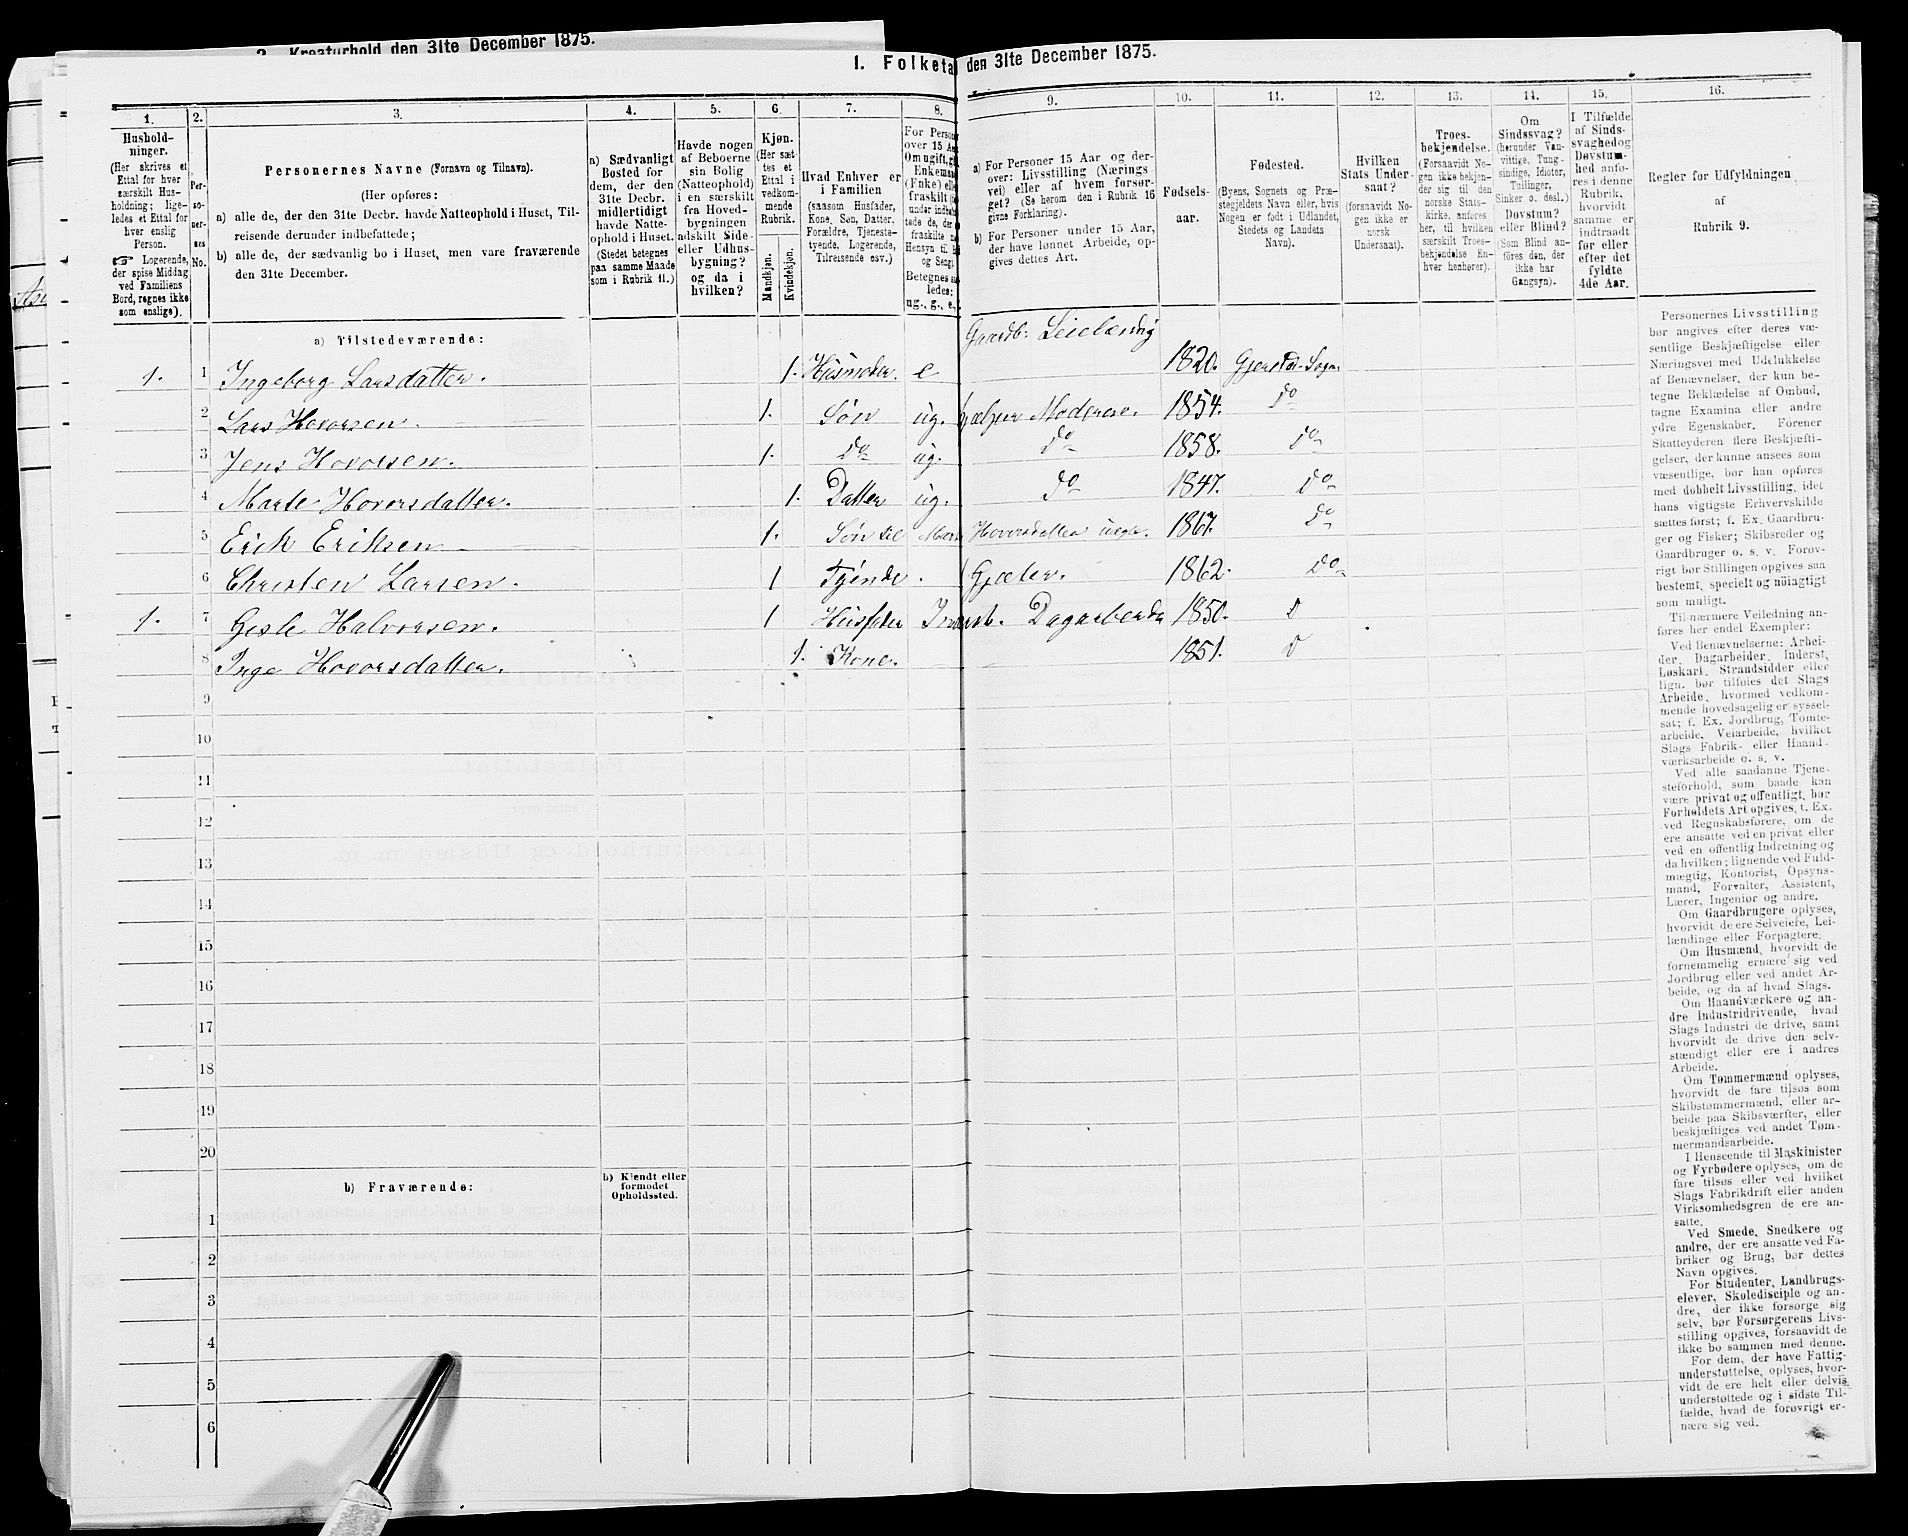 2. Kreaturhold den 31te December 1875.
1. Folketal den 31te December 1875.
1.
Hushold-
ninger.
(Her skrives et
Ettal for hver
særskilt Hus-
holdning; lige-
ledes et Ettal for
hver enslig
Person.
☞ Logerende,
der spise Middag
ved Familiens
Bord, regnes ikke
som enslige).
2.
Per-
so-
ner-
nes
No.
3.
Personernes Navne (Fornavn og Tilnavn).
(Her opføres:
a) alle de, der den 31te Decbr. havde Natteophold i Huset, Til-
reisende derunder indbefattede;
b) alle de, der sædvanlig bo i Huset, men vare fraværende
den 31te December.
4.
a) Sædvanligt
Bosted for
dem, der den
31te Decbr.
midlertidigt
havde Natte-
ophold i Huset.
(Stedet betegnes
paa samme Maade
som i Rubrik 11.)
5.
Havde nogen
af Beboerne
sin Bolig
(Natteophold)
i en særskilt
fra Hoved-
bygningen
adskilt Side-
eller Udhus-
bygning?
og da i
hvilken?
6.
Kjøn.
(Her sæt-
tes et
Ettal i
vedkom-
mende
Rubrik.
Mandkjøn.
Kvindekjøn.
7.
Hvad Enhver er
i Familien
(saasom Husfader,
Kone, Søn, Datter,
Forældre, Tjeneste-
tyende, Logerende,
Tilreisende osv.)
8.
For Person
over 15 Aa
Om ugift, gif
Enkeman
(Enke) elle
fraskilt
Betegnes
ledes:
ug., g., e.,
9.
a) For Personer 15 Aar og der-
over: Livsstilling (Nærings-
vei) eller af hvem forsør-
get? (Se herom den i Rubrik 16
givne Forklaring).
b) For Personer under 15 Aar,
der have lønnet Arbeide, op-
gives dettes Art.
10.
Fødsels-
aar.
11.
Fødested.
(Byens, Sognets og Præ-
stegjeldets Navn eller, hvis
Nogen er født i Udlandet,
Stedets og Landets
Navn).
12.
Hvilken
Stats Under-
saat?
(forsaavidt No-
gen ikke er
norsk
Undersaat).
13.
Troes-
bekjendelse.
(Forsaavidt No-
gen ikke bekjen-
der sig til den
norske Stats-
kirke, anføres
her, til hvilken
særskilt Troes-
bekjendelse En-
hver henhører).
14.
Om
Sindssvag?
(herunder Van-
vittige, Tung-
sindige, Idioter,
Tullinger,
Sinker o. desl.)
Døvstum?
eller Blind?
(Som Blind an-
føres den, der
ikke har
Gangsyn).
15.
I Tilfælde
af Sinds-
svaghed og
Døvstum-
hed anfø-
res i denne
Rubrik,
hvorvidt
samme er
indtraadt
før eller
efter det
fyldte
4de Aar.
16.
Regler for Udfyldningen
af
Rubrik 9.
a) Tilstedeværende:
Gaardb. Leilænding
1. 1 Ingeborg Larsdatter. 1. Husmoder. e 1820. Gjerstad-Sogn.
2 Lars Hovorsen. 1. Søn ug. hjælper Moderen. 1854. Do
3 Jens Hovorsen. 1. Do ug. Do 1858. Do
4 Marte Hovorsdatter. 1. Datter ug. Do 1847. Do
5 Erik Eriksen 1. Søn til Marte Hovorsdatter uægt. 1867. Do
6 Christen Larsen. 1 Tyende. Gjæter. 1862. Do
1. 7 Gisle Halvorsen. 1 Husfader Inderst. Dagarbeide 1850. D
8 Inge Hovorsdatter. 1. Kone. 1851. D
9
10
11
12
13
14
15
16
17
18
19
20
b) Fraværende:
b) Kjendt eller
formodet
Opholdssted.
1
2
3
4
5
6
Personernes Livsstilling
bør angives efter deres væ-
sentlige Beskjæftigelse eller
Næringsvei med Udelukkelse
af Benævnelser, der kun be-
tegne Beklædelse af Ombud,
tagne Examina eller andre
ydre Egenskaber. Forener
Skatteyderen flere Beskjæfti-
gelser, der kunne ansees som
væsentlige, bør han opføres
med dobbelt Livsstilling, idet
hans vigtigste Erhvervskilde
sættes først; f. Ex. Gaardbru-
ger og Fisker; Skibsreder og
Gaardbruger o. s. v. Forøv-
rigt bør Stillingen opgives saa
bestemt, specielt og nøiagtigt
som muligt.
Til nærmere Veiledning an-
føres her endel Exempler:
Ved Benævnelserne: Arbei-
der, Dagarbeider, Inderst,
Løskarl, Strandsidder eller
lign. bør tilføies det Slags
Arbeide, hvormed vedkom-
mende hovedsagelig er syssel-
sat; f. Ex. Jordbrug, Tomte-
arbeide, Veiarbeide, hvilket
Slags Fabrik- eller Haand-
værksarbeide o. s. v.
Ved alle saadanne Tjene-
steforhold, som baade kan
være privat og offentligt, bør
Forholdets Art opgives, t. Ex.
ved Regnskabsførere, om de
ere ansatte ved en privat eller
ved en offentlig Indretning og
da hvilken; lignende ved Fuld-
mægtig, Kontorist, Opsyns-
mand, Forvalter, Assistent,
Lærer, Ingeniør og andre.
Om Gaardbrugere oplyses,
hvorvidt de ere Selveiere, Lei-
lændinge eller Forpagtere.
Om Husmænd, hvorvidt de
fornemmelig ernære sig ved
Jordbrug eller ved andet Ar-
beide, og da af hvad Slags.
Om Haandværkere og an-
dre Industridrivende, hvad
Slags Industri de drive, samt
hvorvidt de drive den selv-
stændigt eller ere i andres
Arbeide.
Om Tømmermænd oplyses,
hvorvidt de fare tilsøs som
Skibstømmermænd, eller ar-
beide paa Skibsværfter, eller
beskjæftiges ved andet Tøm-
mermandsarbeide.
I Henseende til Maskinister
og Fyrbødere oplyses, om de
fare tilsøs eller ved hvilket
Slags Fabrikdrift eller anden
Virksomhedsgren de ere an-
satte.
Ved Smede, Snedkere og
andre, der ere ansatte ved Fa-
briker og Brug, bør dettes
Navn opgives.
For Studenter, Landbrugs-
elever, Skoledisciple og an-
dre, der ikke forsørge sig
selv, bør Forsørgerens Livs-
stilling opgives, forsaavidt de
ikke bo sammen med denne.
For dem, der have Fattig-
understøttelse, oplyses, hvor-
vidt de ere helt eller delvis
understøttede og i sidste Til-
fælde, hvad de forøvrigt er-
nære sig ved.